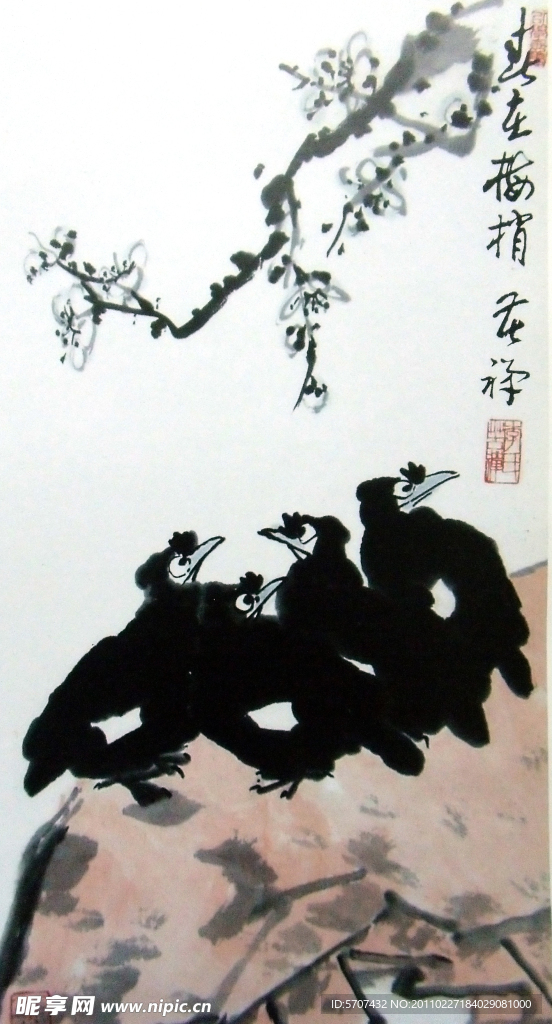 春在梅梢 苦禅
昵享网 www.nipic.cn
ID:5707432 NO:20110227184029081000